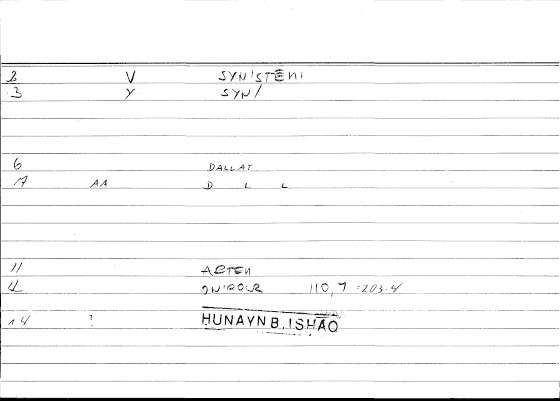 2 V SYN'STĒNI
3 Y SYN/
6 DALLAT
17 AA D L L
11
12 110,7 = 203.4
14 ? HUNAYN B. ISHĀQ